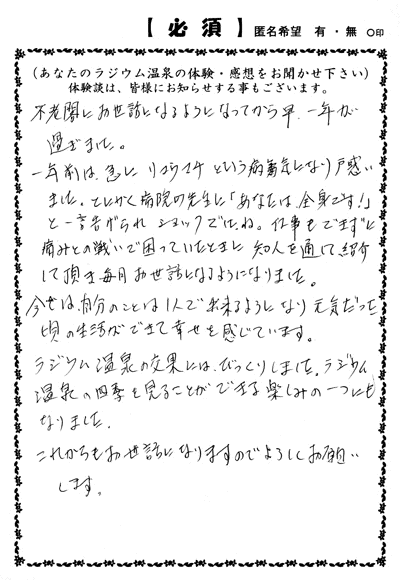 【必須】 匿名希望 有・無 ○印
(あなたのラジウム温泉の体験・感想をお聞かせ下さい)
体験談は、皆様にお知らせする事もございます。
不老閣にお世話になるようになってから早一年が
過ぎました。
一年前は、急にリウマチという病気になり戸惑い
ました。とにかく病院の先生に「あなたは、全身です!」
と一言告げられショックでしたね。仕事もできずに
痛みとの戦いで困っていたときに知人を通じて紹介
して頂き毎月お世話になるようになりました。
今では、自分のことは1人で出来るようになり元気だった
頃の生活ができて幸せを感じています。
ラジウム温泉の効果には、びっくりしました。ラジウム
温泉の四季を見ることができる楽しみの一つにも
なりました。
これからもお世話になりますのでよろしくお願い
します。